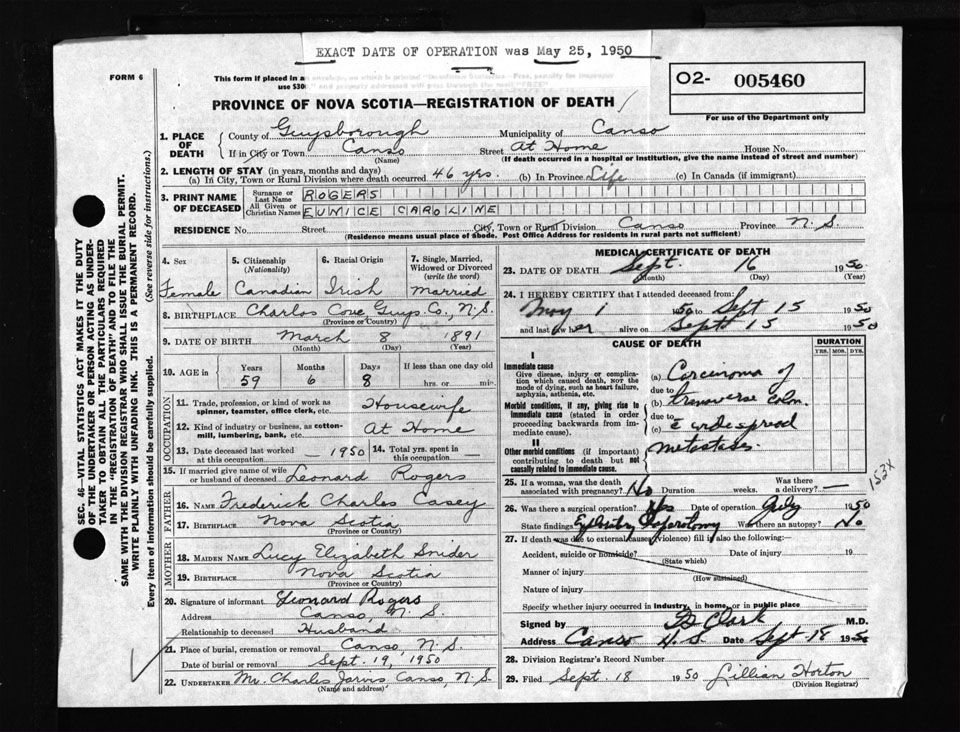 EXACT DATE OF OPERATION was May 25, 1950
FORM 6
This form if placed in a
use $30
O2- 005460
For use of the Department only
PROVINCE OF NOVA SCOTIA—REGISTRATION OF DEATH
1. PLACE OF DEATH
County of Guysborough Municipality of Canso
If in City or Town Canso Street At Home House No.
(Name) (If death occurred in a hospital or institution, give the name instead of street and number)
2. LENGTH OF STAY (in years, months and days)
(a) In City, Town or Rural Division where death occurred 46 yrs. (b) In Province Life (c) In Canada (if immigrant)
3. PRINT NAME OF DECEASED
Surname or Last Name ROGERS
All Given or Christian Names EUNICE CAROLINE
RESIDENCE No. Street City, Town or Rural Division Canso Province N.S.
(Residence means usual place of abode. Post Office Address for residents in rural parts not sufficient)
4. Sex
Female
5. Citizenship (Nationality)
Canadian
6. Racial Origin
Irish
7. Single, Married, Widowed or Divorced (write the word)
Married
8. BIRTHPLACE Charlos Cove Guys. Co., N.S.
(Province or Country)
9. DATE OF BIRTH March 8 1891
(Month) (Day) (Year)
10. AGE in Years Months Days If less than one day old
59 6 8 hrs. or min.
OCCUPATION
11. Trade, profession, or kind of work as spinner, teamster, office clerk, etc. Housewife
12. Kind of industry or business, as cotton-mill, lumbering, bank, etc. At Home
13. Date deceased last worked at this occupation — 1950 14. Total yrs. spent in this occupation —
15. If married give name of wife or husband of deceased Leonard Rogers
FATHER
16. Name Frederick Charles Casey
17. Birthplace Nova Scotia
(Province or Country)
MOTHER
18. MAIDEN NAME Lucy Elizabeth Snider
19. BIRTHPLACE Nova Scotia
(Province or Country)
20. Signature of informant Leonard Rogers
Address Canso, N.S.
Relationship to deceased Husband
21. Place of burial, cremation or removal Canso, N.S.
Date of burial or removal Sept. 19, 1950
22. UNDERTAKER Mr. Charles Jarvis Canso, N.S.
(Name and address)
MEDICAL CERTIFICATE OF DEATH
23. DATE OF DEATH Sept. 16 1950
(Month) (Day) (Year)
24. I HEREBY CERTIFY that I attended deceased from:
May 1 1950 to Sept 15 1950
and last saw her alive on Sept 15 1950
CAUSE OF DEATH DURATION
YRS. MOS. DYS.
I
Immediate cause
Give disease, injury or complication which caused death, NOT the mode of dying, such as heart failure, asphyxia, asthenia, etc.
Morbid conditions, if any, giving rise to immediate cause (stated in order proceeding backwards from immediate cause).
II
Other morbid conditions (if important) contributing to death but not causally related to immediate cause.
(a) Carcinoma of
due to
(b) transverse colon.
due to
(c) c widespread
metastases.
153X
25. If a woman, was the death associated with pregnancy? No Duration weeks. Was there a delivery? —
26. Was there a surgical operation? Yes Date of operation July 1950
State findings Laporotomy Was there an autopsy? No
27. If death was due to external causes (violence) fill in also the following:
Accident, suicide or homicide? Date of injury 19
(State which)
Manner of injury
(How sustained)
Nature of injury
Specify whether injury occurred in industry, in home, or in public place
Signed by Clark M.D.
Address Canso N.S. Date Sept 18 1950
28. Division Registrar's Record Number
29. Filed Sept. 18 1950 Lillian Horton
(Division Registrar)
SEC. 46—VITAL STATISTICS ACT MAKES IT THE DUTY
OF THE UNDERTAKER OR PERSON ACTING AS UNDER-
TAKER TO OBTAIN ALL THE PARTICULARS REQUIRED
IN THE "REGISTRATION OF DEATH" AND TO FILE THE
SAME WITH THE DIVISION REGISTRAR WHO SHALL ISSUE THE BURIAL PERMIT.
WRITE PLAINLY WITH UNFADING INK. THIS IS A PERMANENT RECORD.
Every item of information should be carefully supplied. (See reverse side for instructions.)